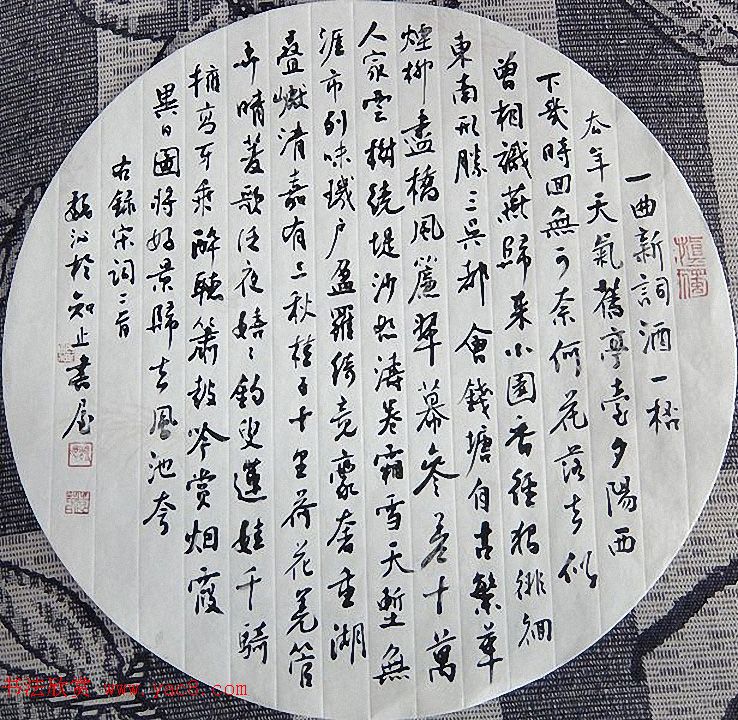 一曲新詞酒一桮
去年天氣舊亭臺夕陽西
下幾時回無可奈何花落去似
曾相識燕歸來小園香徑獨徘徊
東南形勝三吳都會錢塘自古繁華
煙柳畫橋風簾翠幕參差十萬
人家雲樹繞堤沙怒濤卷霜雪天塹無
涯市列珠璣戶盈羅綺競豪奢重湖
疊巘清嘉有三秋桂子十里荷花羌管
弄晴菱歌泛夜嬉〻釣叟蓮娃千騎
擁高牙乘醉聽簫鼓吟賞烟霞
異日圖將好景歸去鳳池夸
右錄宋詞二首
於知止書屋
书法欣赏 www.yac8.com